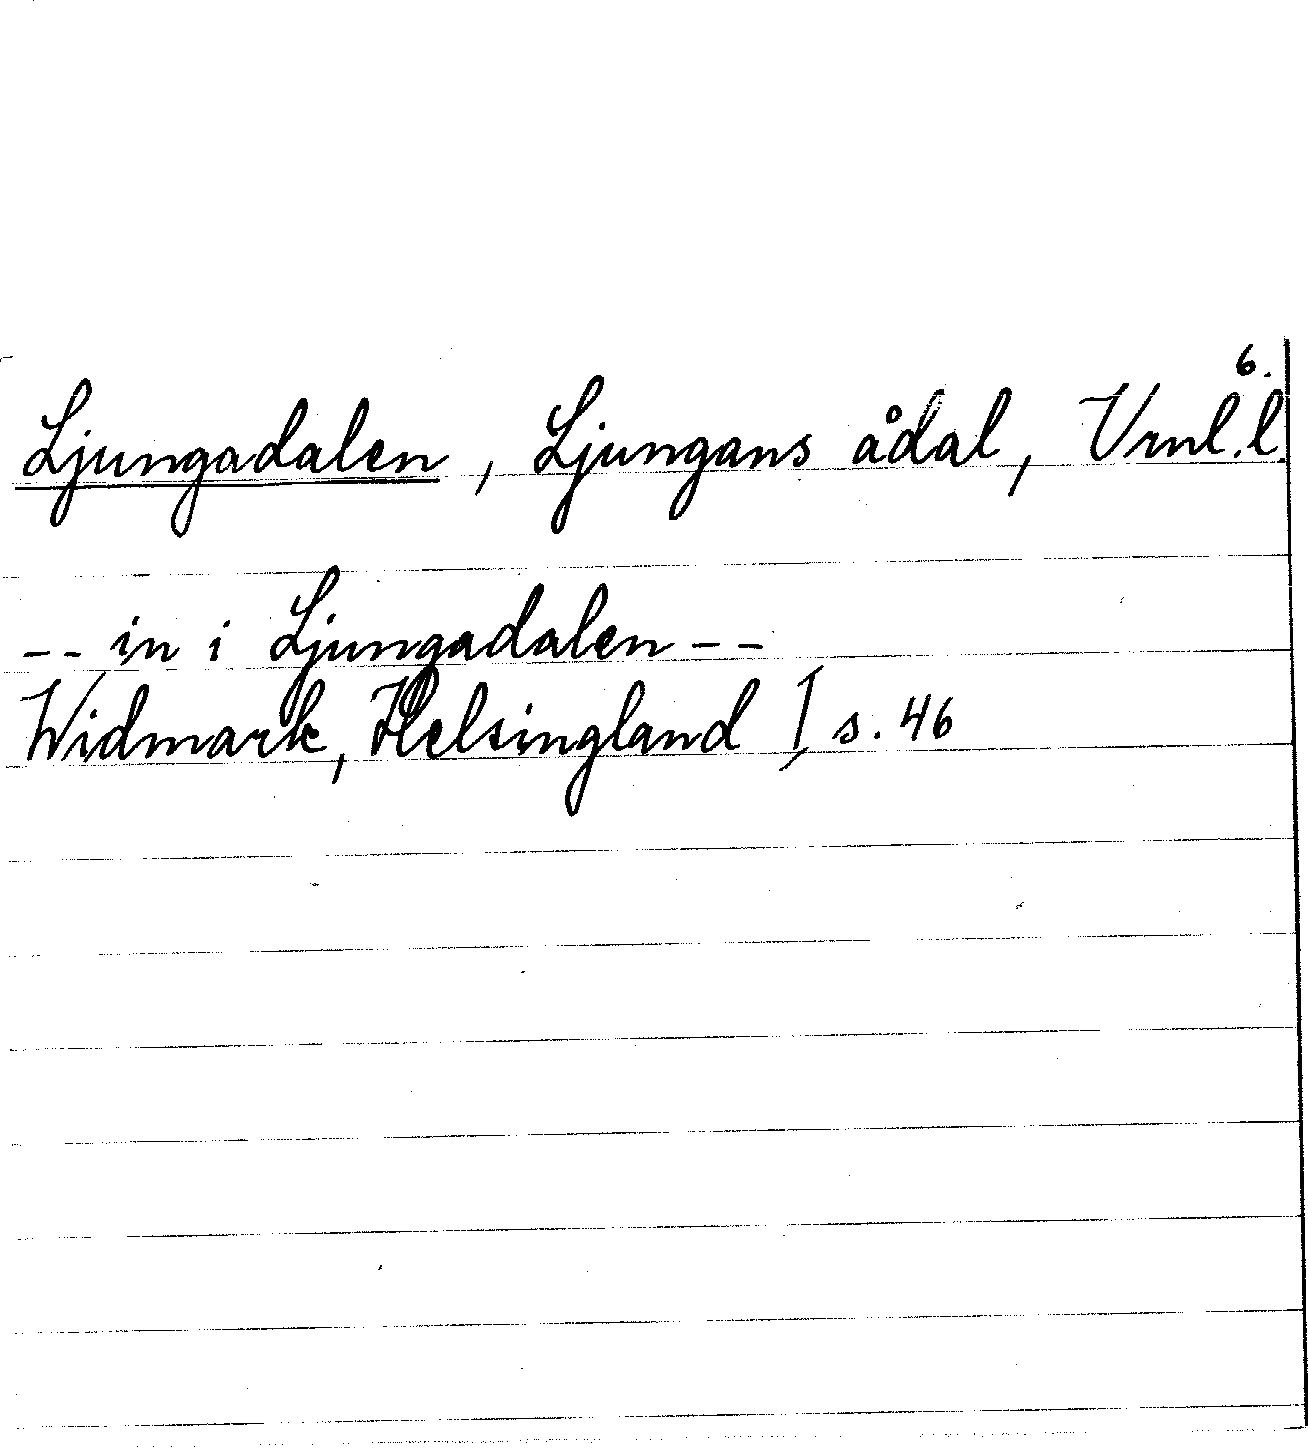 6.
Ljungadalen, Ljungans ådal, Vrnl.l.
-- in i Ljungadalen --
Widmark, Helsingland I s. 46